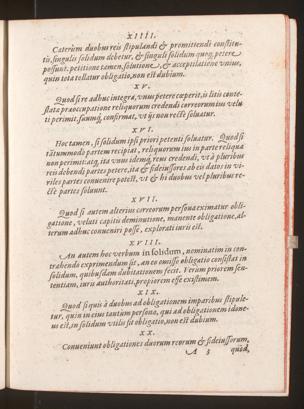 XIIII.
Caterùm duobus reis stipulandi & promittendi constitu-
tis, singulis solidum debetur, & singuli solidum quoq; petere
possunt. petitione tamen, solutione, & acceptilatione vnius,
quin tota tollatur obligatio, non est dubium.
XV.
Quod si re adhuc integra, vnus petere cœperit, is litis conte-
stata præoccupatione reliquorum credendi correorum ius velu
ti perimit, suumq; confirmat, vt ijs non rectè soluatur.
XVI.
Hoc tamen, si solidum ipsi priori petenti soluatur. Quod si
tātummodo partem recipiat, reliquorum ius in parte reliqua
non perimit: atq; ita vnus idemq; reus credendi, vt à pluribus
reis debendi partes petere, ita & fideiussores ab eis datos in vi-
riles partes conuenire potest, vt & hi duobus vel pluribus re-
ctè partes soluunt.
XVII.
Quod si autem alterius correorum persona eximatur obli-
gatione, veluti capitis deminutione, manente obligatione, al-
terum adhuc conueniri posse, explorati iuris est.
XVIII.
An autem hoc verbum in solidum, nominatim in con-
trahendi exprimendum sit, an eo omisso obligatio consistat in
solidum, quibusdam dubitationem fecit. Verùm priorem sen-
tentiam, iuris authoritati, propiorem esse existimem.
XIX.
Quod si quis à duobus ad obligationem imparibus stipule-
tur, quin in eius tantùm persona, qui ad obligationem idone-
us est, in solidum vtilis sit obligatio, non est dubium.
XX.
Conueniunt obligationes duorum reorum & fideiussorum,
A 3 quòd,